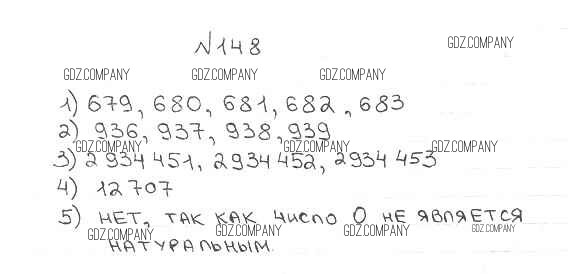 №148
GDZ.COMPANY
GDZ.COMPANY GDZ.COMPANY GDZ.COMPANY
1) 679, 680, 681, 682, 683
2) 936, 937, 938, 939
GDZ.COMPANY GDZ.COMPANY GDZ.COMPANY
3) 2 934 451, 2 934 452, 2 934 453
4) 12 707
5) НЕТ, ТАК КАК ЧИСЛО 0 НЕ ЯВЛЯЕТСЯ
GDZ.COMPANY GDZ.COMPANY GDZ.COMPANY
НАТУРАЛЬНЫМ.